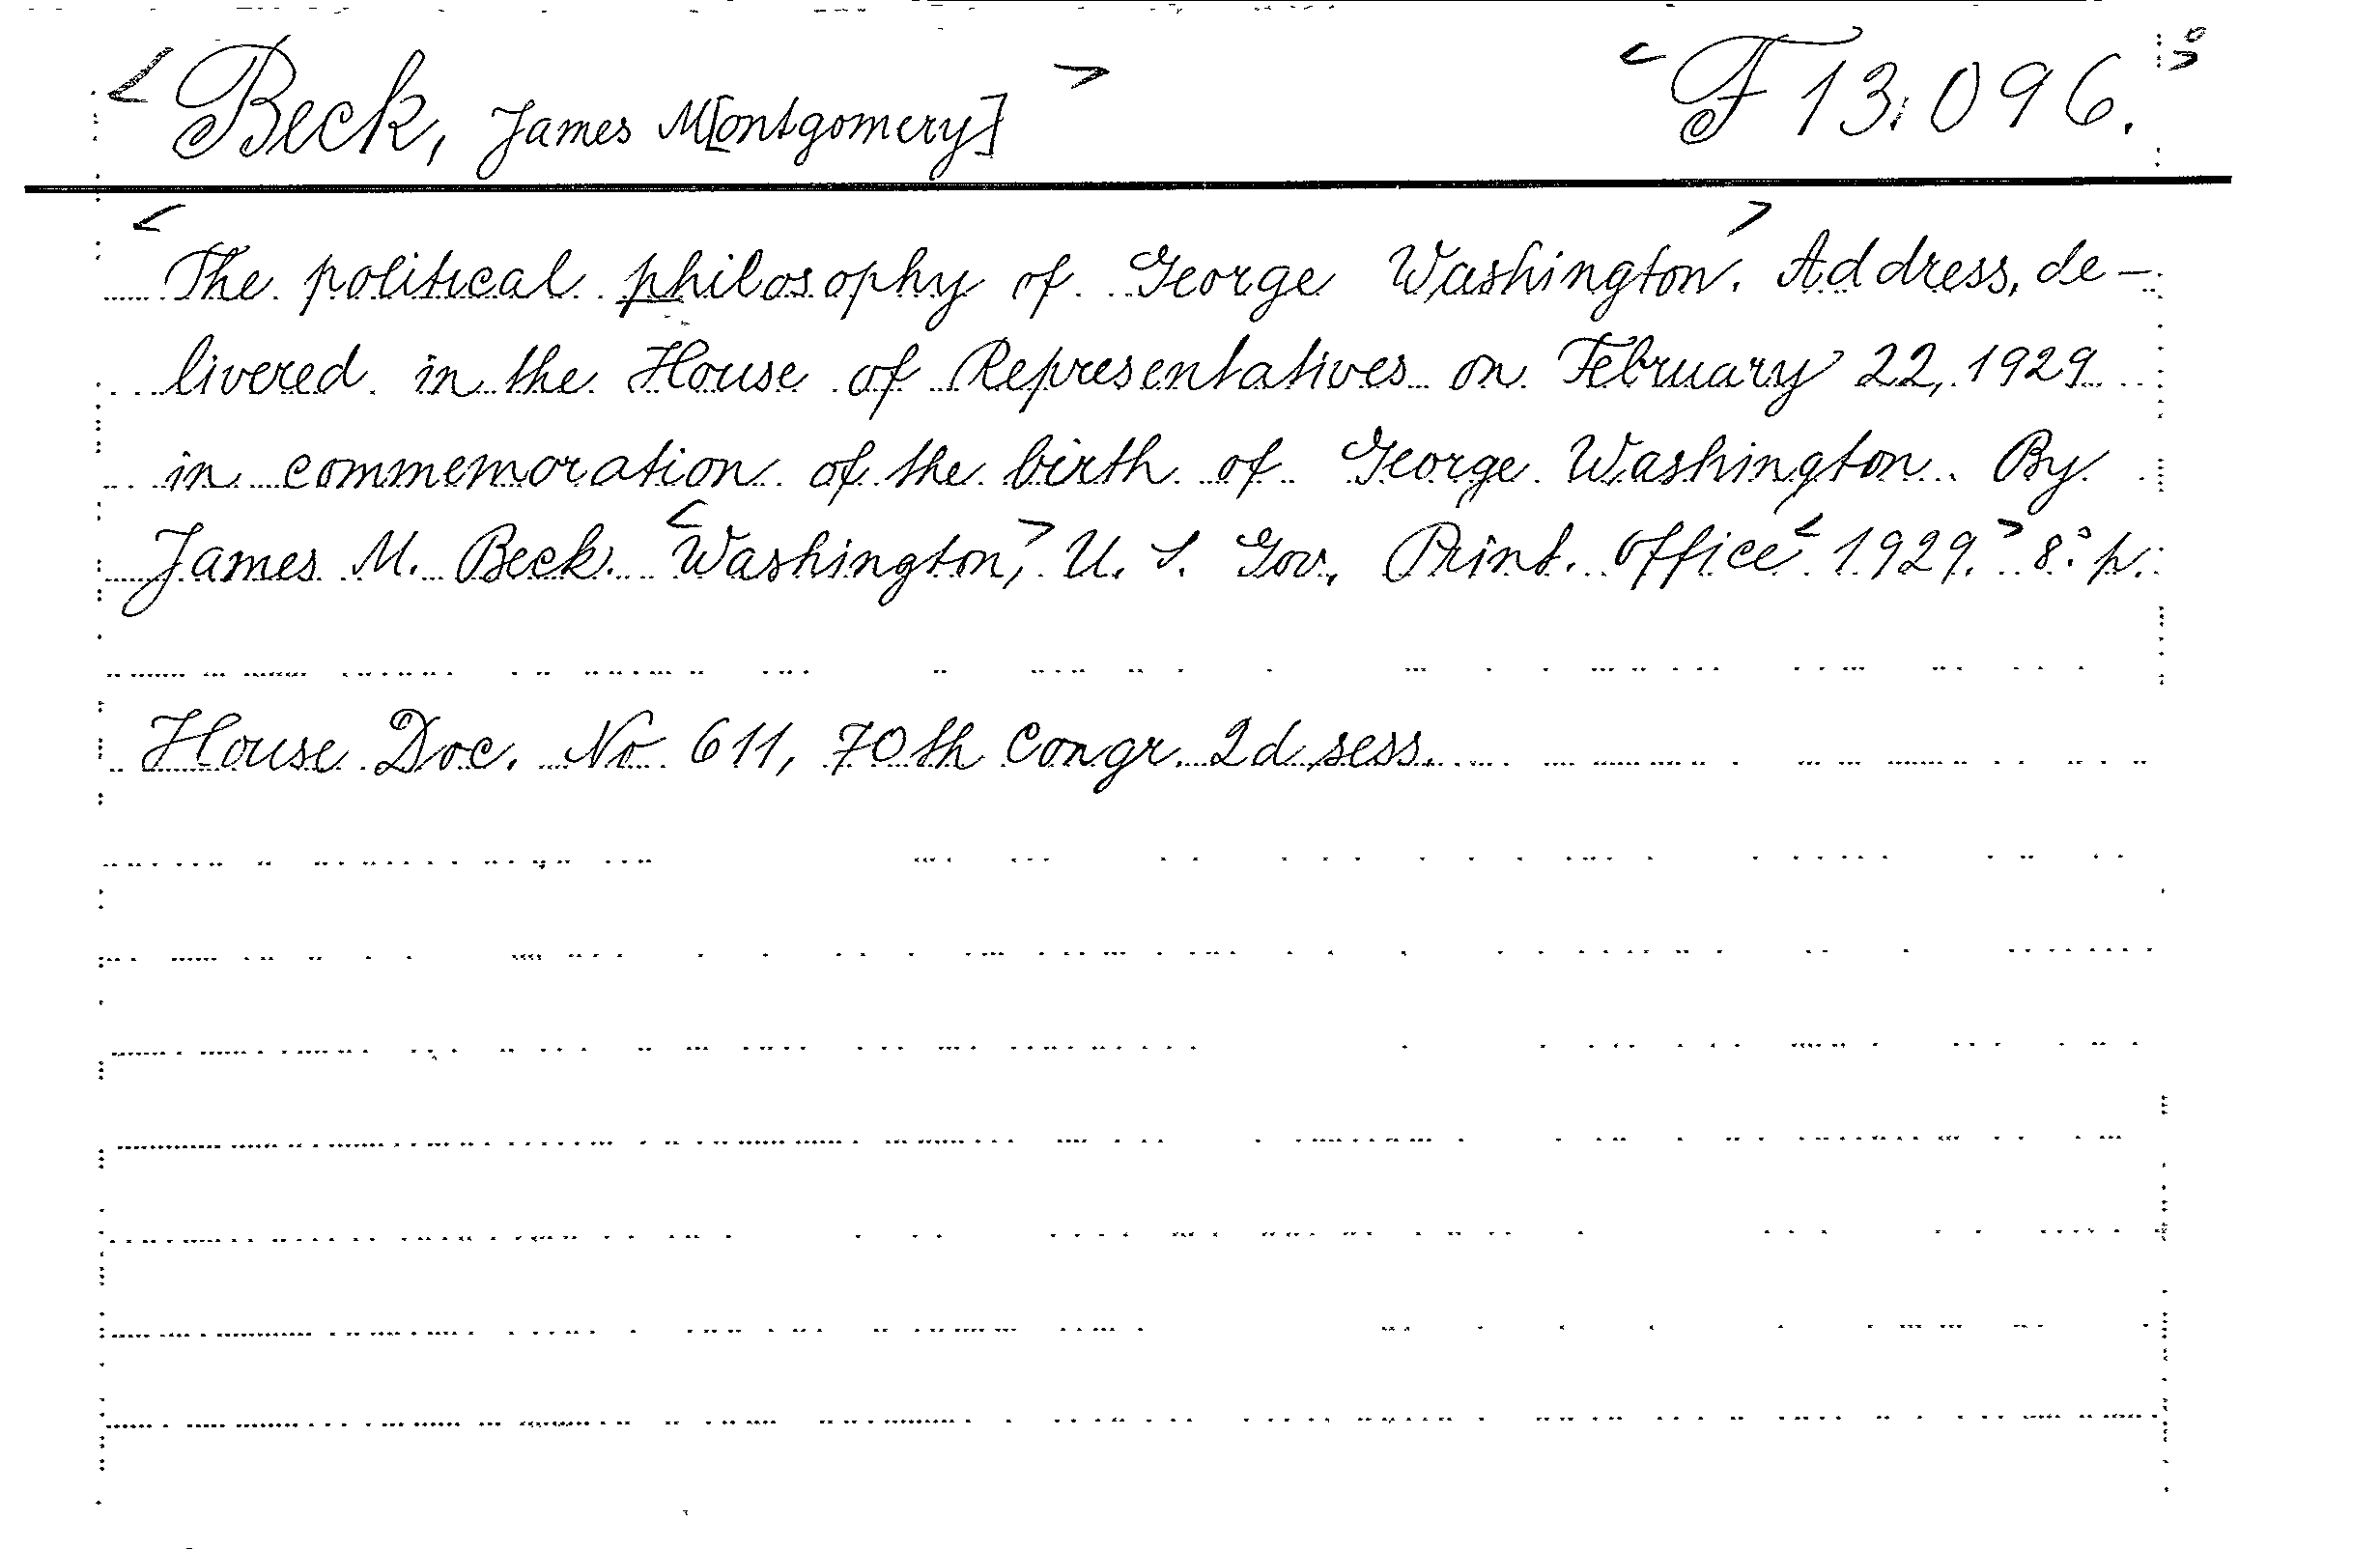 < Beck, James M[ontgomery] > < F 13.096. >
< The political philosophy of George Washington. > Address, de-
livered in the House of Representatives on February 22, 1929
in commemoration of the birth of George Washington. By
James M. Beck. < Washington, > U. S. Gov. Print. Office < 1929. > 8° p.
House Doc. No 611, 70th Congr. 2d sess.